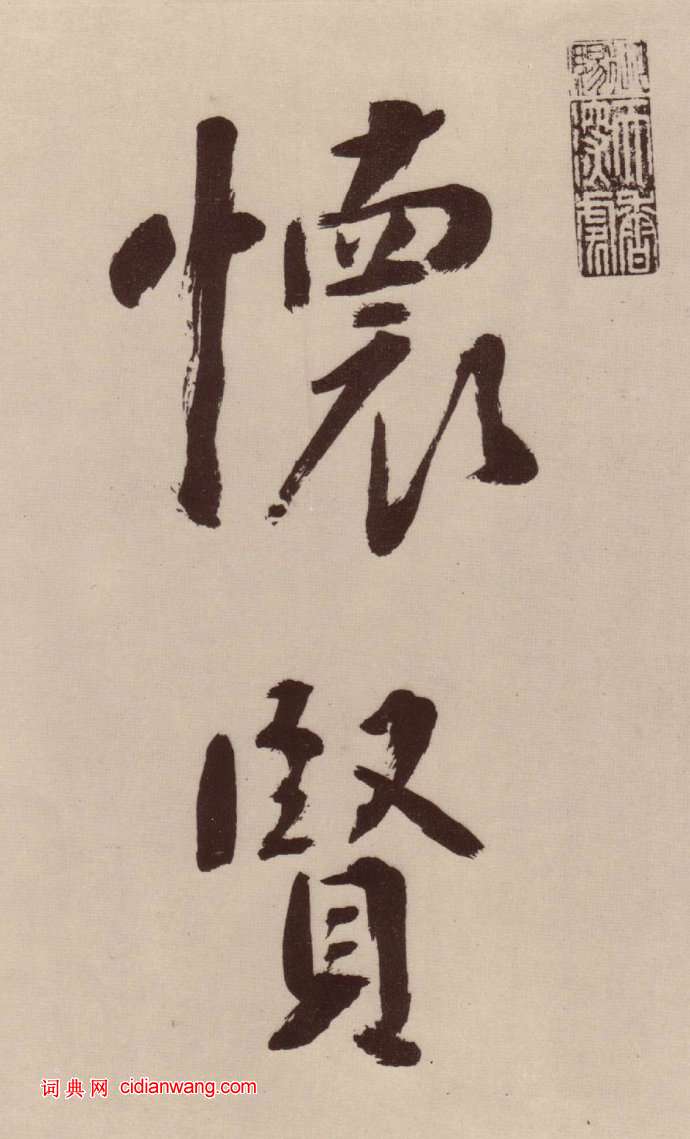 懷
賢
词典网 cidianwang.com